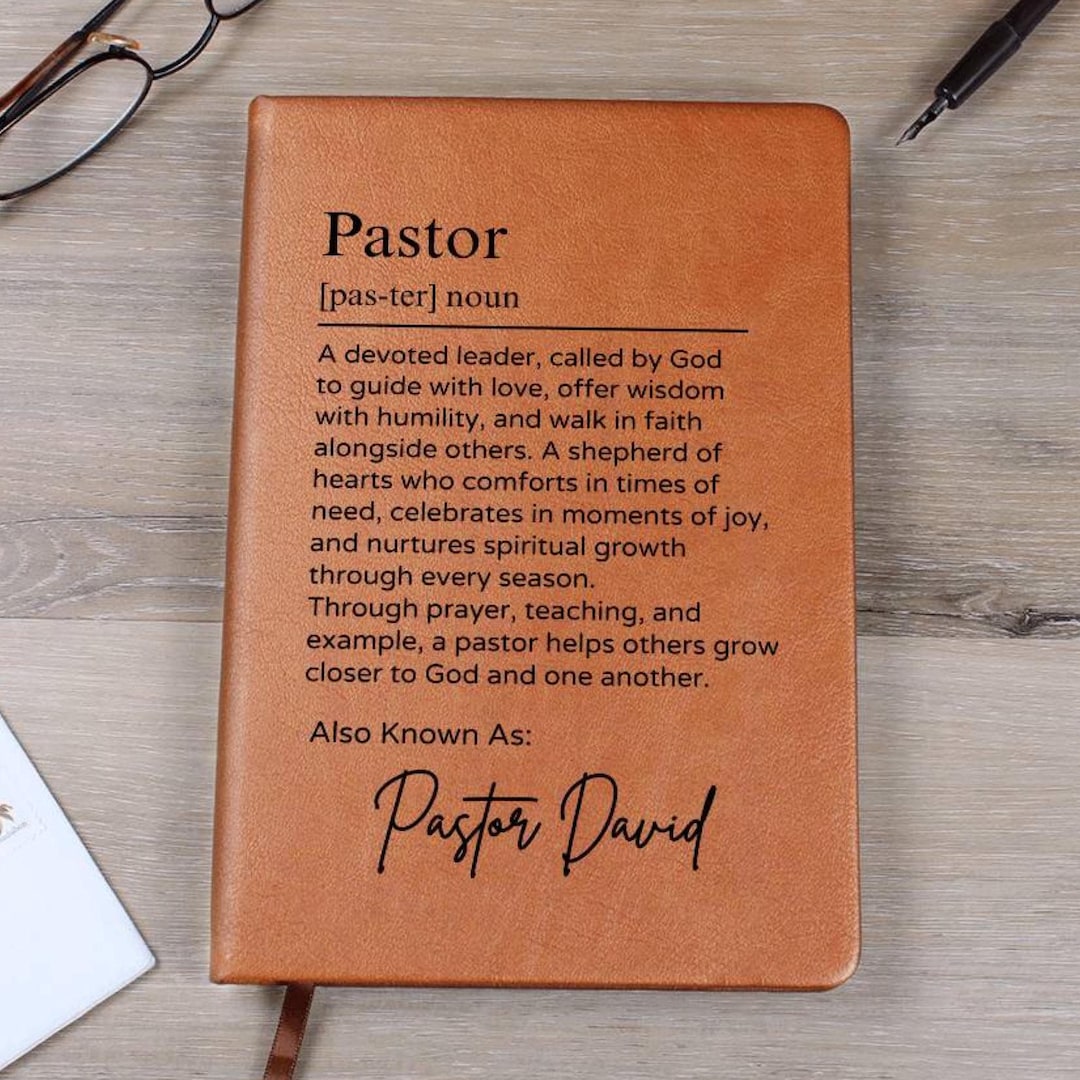 Pastor
[pas-ter] noun
A devoted leader, called by God
to guide with love, offer wisdom
with humility, and walk in faith
alongside others. A shepherd of
hearts who comforts in times of
need, celebrates in moments of joy,
and nurtures spiritual growth
through every season.
Through prayer, teaching, and
example, a pastor helps others grow
closer to God and one another.
Also Known As:
Pastor David